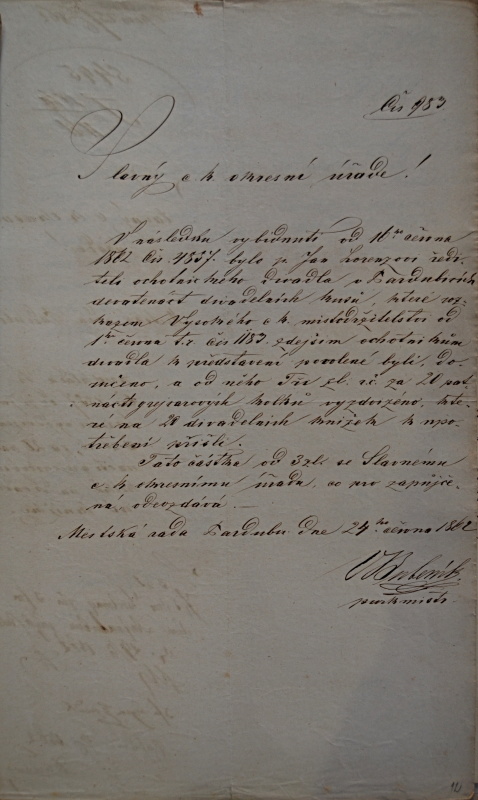 Čís 983
Slavný c. k. okresní úřade!
V následku vybídnutí od 16ho června
1862 čís. 4337. bylo p. Jan Lorenzovi ředi-
teli ochotnického divadla v Pardubicích
devatenáct divadelních kusů, které roz-
kazem Vysokého c. k. místodržitelství od
1ho června t. r. čís 1183. zdejším ochotníkům
divadla k představení povolené byli, do-
ručeno, a od něho Tři zl. r. č. za 20 pat-
náctigrejcarových kolků vyzdviženo, kte-
ré na 20 divadelních knížek k upo-
třebení přišli.
Tato částka od 3 zl. se Slavnému
c. k. okresnímu úřadu, co pro zapůjče-
ná odevzdává.
Mestská rada Pardub. dne 24ho června 1862
purkmistr.
10